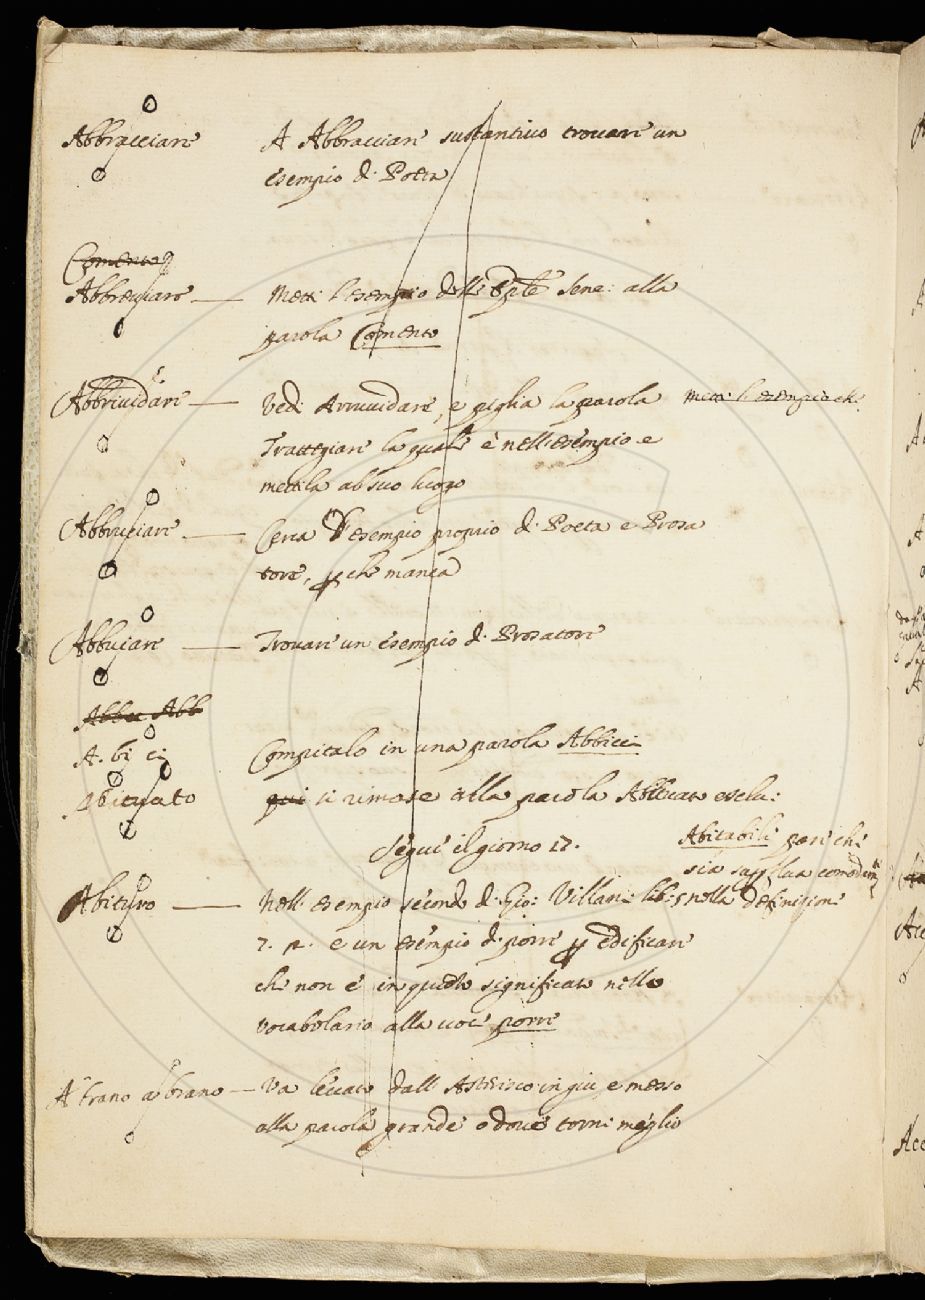 Abbracciare A Abbracciare sustantivo trovare un
esempio di Poeta
Comento
Abbreviare — Metti l'esempio delle Pistole Sene: alla
parola Comento
Abbrividare — Vedi Arrividare, e piglia la parola
Metti l'esempio che
Tratteggiare la quale è nell'esempio e
mettila al suo luogo
Abbruciare — Cerca l'esempio proprio di Poeta e Prosa
tore, p che manca
Abbuiare — Trovare un esempio di Prosatore
Abbic Abb
A. bi ci Compitalo in una parola Abbicci
Abituato qui si rimase alla parola Abituato esclu:
Segue il giorno 17.
Abitabile pare che
sia
Abituro — Nell'esempio secondo di Gio: Villani lib: 5 nella definizione
7. p. e un esempio di porre p edificare
che non è in questo significato nello
vocabolario alla voce porre
A brano a brano — Va levato dall'Asterisco in giu, e messo
alla parola grande o dove torni meglio